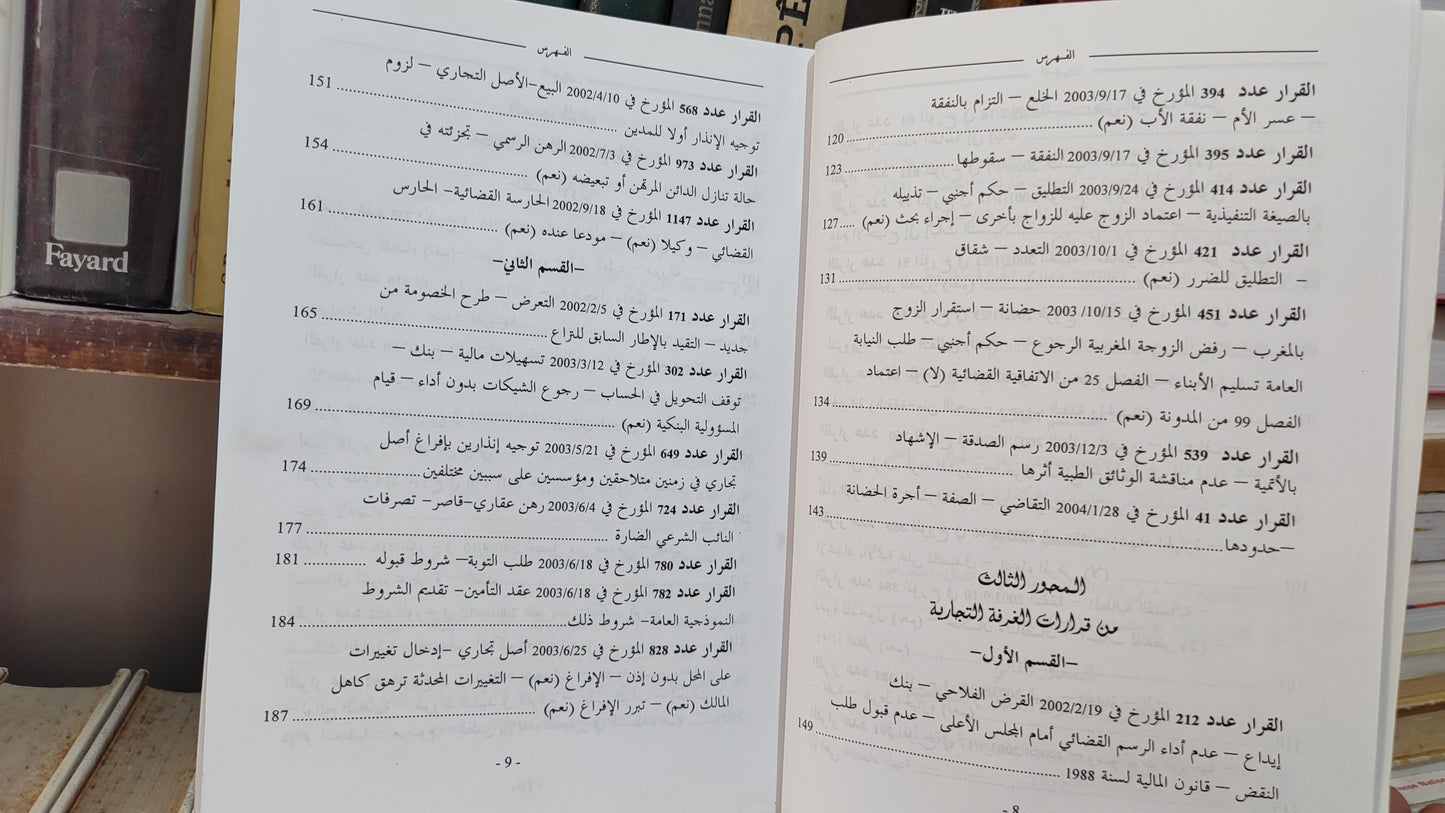 الفهرس
القرار عدد 394 المؤرخ في 2003/9/17 الخلع – التزام بالنفقة
– عسر الأم – نفقة الأب (نعم) ........ 120
القرار عدد 395 المؤرخ في 2003/9/17 النفقة – سقوطها ........ 123
القرار عدد 414 المؤرخ في 2003/9/24 التطليق – حكم أجنبي – تذييله
بالصيغة التنفيذية – اعتماد الزوج عليه للزواج بأخرى – إجراء بحث (نعم) .... 127
القرار عدد 421 المؤرخ في 2003/10/1 التعدد – شقاق
– التطليق للضرر (نعم) ........ 131
القرار عدد 451 المؤرخ في 10/15/ 2003 حضانة – استقرار الزوج
بالمغرب – رفض الزوجة المغربية الرجوع – حكم أجنبي – طلب النيابة
العامة تسليم الأبناء – الفصل 25 من الاتفاقية القضائية (لا) – اعتماد
الفصل 99 من المدونة (نعم) ........ 134
القرار عدد 539 المؤرخ في 2003/12/3 رسم الصدقة – الإشهاد
بالأتمية – عدم مناقشة الوثائق الطبية أثرها ........ 139
القرار عدد 41 المؤرخ في 2004/1/28 التقاضي – الصفة – أجرة الحضانة
–حدودها ........ 143
المحور الثالث
من قرارات الغرفة التجارية
–القسم الأول–
القرار عدد 212 المؤرخ في 2002/2/19 القرض الفلاحي – بنك
إيداع – عدم أداء الرسم القضائي أمام المجلس الأعلى – عدم قبول طلب
النقض – قانون المالية لسنة 1988 ........ 149
- 8
الفهرس
القرار عدد 568 المؤرخ في 2002/4/10 البيع–الأصل التجاري – لزوم
توجيه الإنذار أولا للمدين ........ 151
القرار عدد 973 المؤرخ في 2002/7/3 الرهن الرسمي – تجزئته في
حالة تنازل الدائن المرتهن أو تبعيضه (نعم) ........ 154
القرار عدد 1147 المؤرخ في 2002/9/18 الحارسة القضائية– الحارس
القضائي – وكيلا (نعم) – مودعا عنده (نعم) ........ 161
–القسم الثاني–
القرار عدد 171 المؤرخ في 2002/2/5 التعرض – طرح الخصومة من
جديد – التقيد بالإطار السابق للتراع ........ 165
القرار عدد 302 المؤرخ في 2003/3/12 تسهيلات مالية – بنك –
توقف التحويل في الحساب – رجوع الشيكات بدون أداء – قيام
المسؤولية البنكية (نعم) ........ 169
القرار عدد 649 المؤرخ في 2003/5/21 توجيه إنذارين بإفراغ أصل
تجاري في زمنين متلاحقين ومؤسسين على سببين مختلفين ........ 174
القرار عدد 724 المؤرخ في 2003/6/4 رهن عقاري–قاصر– تصرفات
النائب الشرعي الضارة ........ 177
القرار عدد 780 المؤرخ في 2003/6/18 طلب التوبة– شروط قبوله ........ 181
القرار عدد 782 المؤرخ في 2003/6/18 عقد التأمين– تقديم الشروط
النموذجية العامة– شروط ذلك ........ 184
القرار عدد 828 المؤرخ في 2003/6/25 أصل تجاري –إدخال تغييرات
على المحل بدون إذن – الإفراغ (نعم) – التغييرات المحدثة ترهق كاهل
المالك (نعم) – تبرر الإفراغ (نعم) ........ 187
- 9 -
Fayard